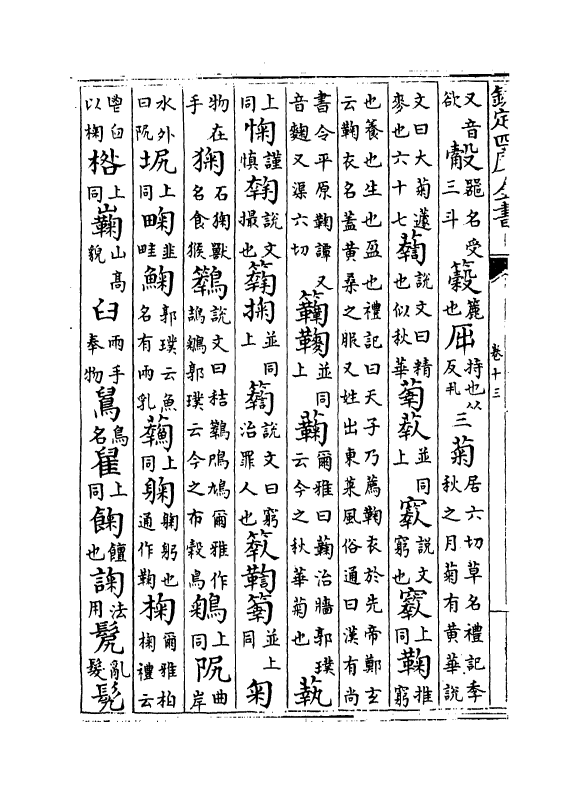 欽定四庫全書
卷十三
又音欲㲄器名受三斗籔簏也𡱝持也从反丮三菊居六切草名禮記季秋之月菊有黃華說
文曰大菊蘧麥也六十七說文曰精也似秋華並同上說文窮也上同鞠推窮
也養也生也盈也禮記曰天子乃薦鞠衣於先帝鄭玄云鞠衣名蓋黃桑之服又姓出東萊風俗通曰漢有尚
書令平原鞠譚又音麴又渠六切並同上蘜爾雅曰蘜治牆郭璞云今之秋華菊也
上同㥌謹慎說文撮也掬並同上說文曰窮治罪人也並上同匊
物在手㹼石㹼獸名食猴說文曰秸鞠鳲鳩爾雅作鴶鵴郭璞云今之布穀鳥上同曲岸
水外曰阮上同韭畦郭璞云魚名有兩乳上同躹躹躬也通作鞠椈爾雅柏椈禮云
鬯臼以椈上同山高貌𦥑兩手奉物鳥名上同饘也諊法用亂髮